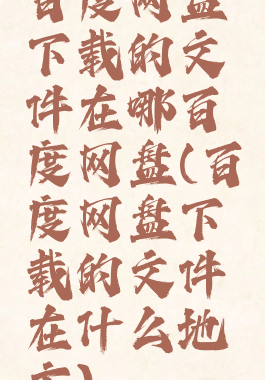 百度网盘
下载的文
件在哪百
度网盘(百
度网盘下
载的文件
在什么地
方)